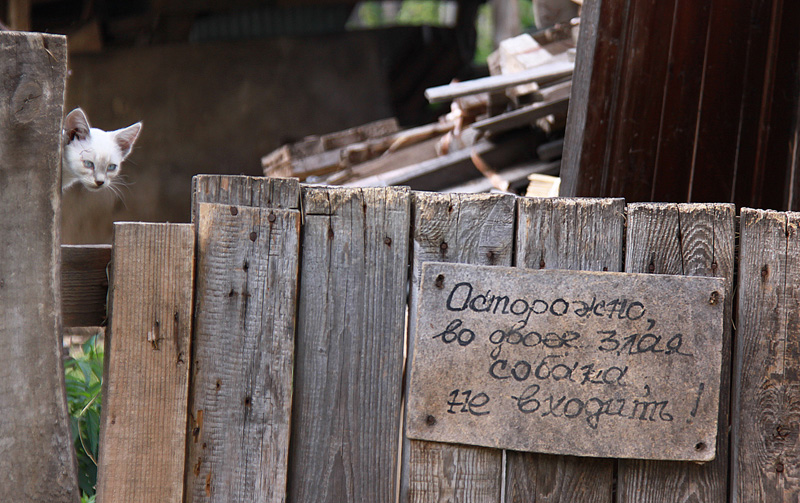 Осторожно,
во дворе злая
собака,
не входить!